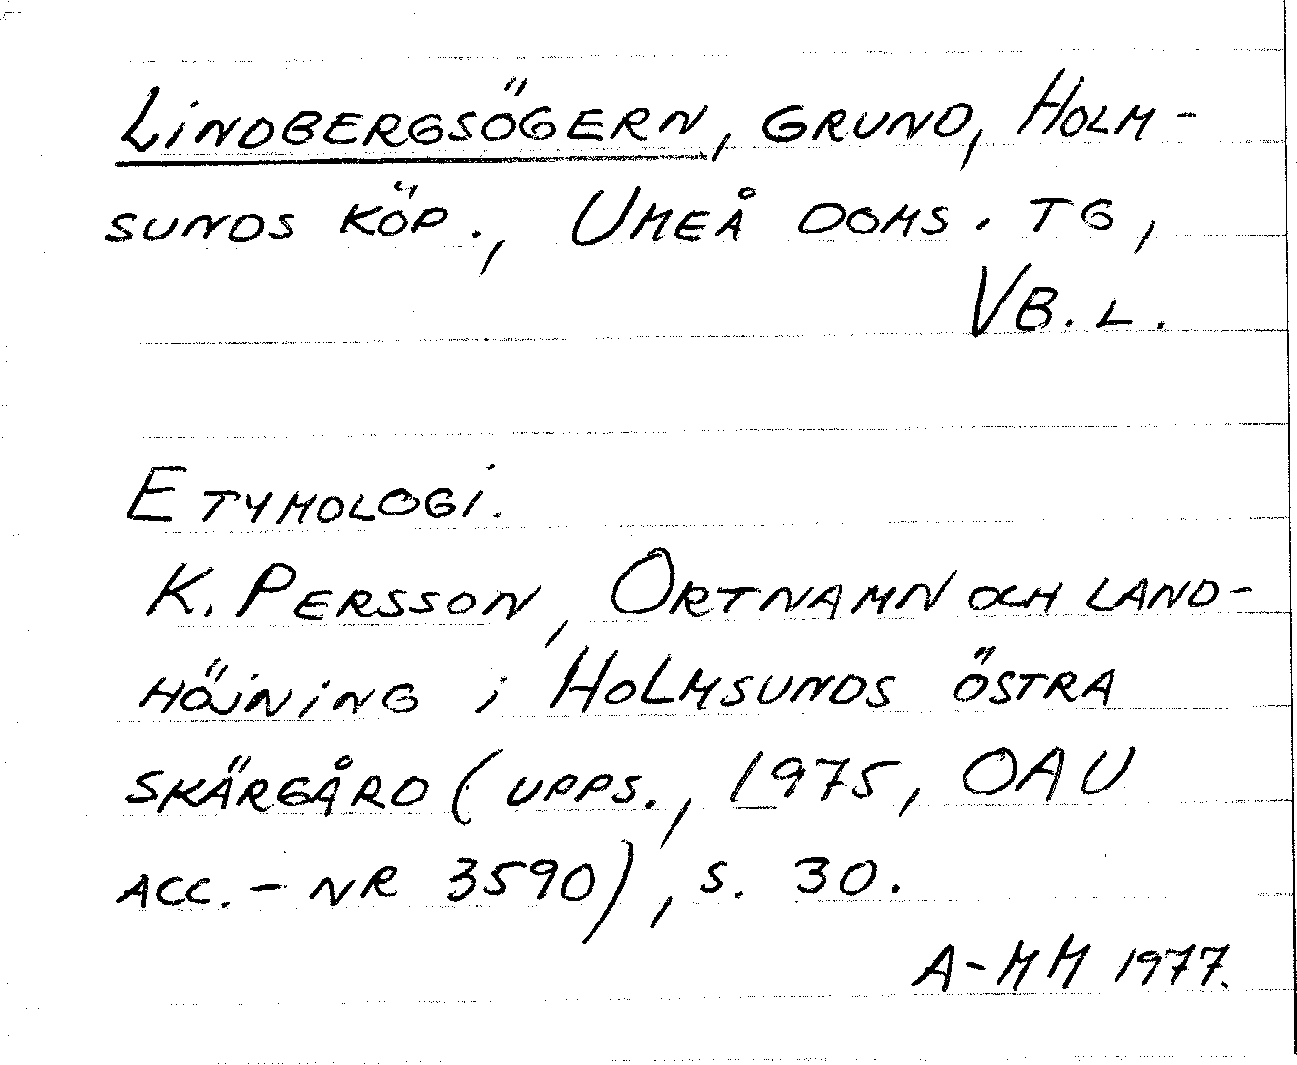 LINDBERGSÖGERN, GRUND, HOLM-
SUNDS KÖP., UMEÅ DOMS. TG,
VB. L.
ETYMOLOGI.
K. PERSSON, ORTNAMN OCH LAND-
HÖJNING i HOLMSUNDS ÖSTRA
SKÄRGÅRD (UPPS., 1975, OAU
ACC.-NR 3590), S. 30.
A-MM 1977.